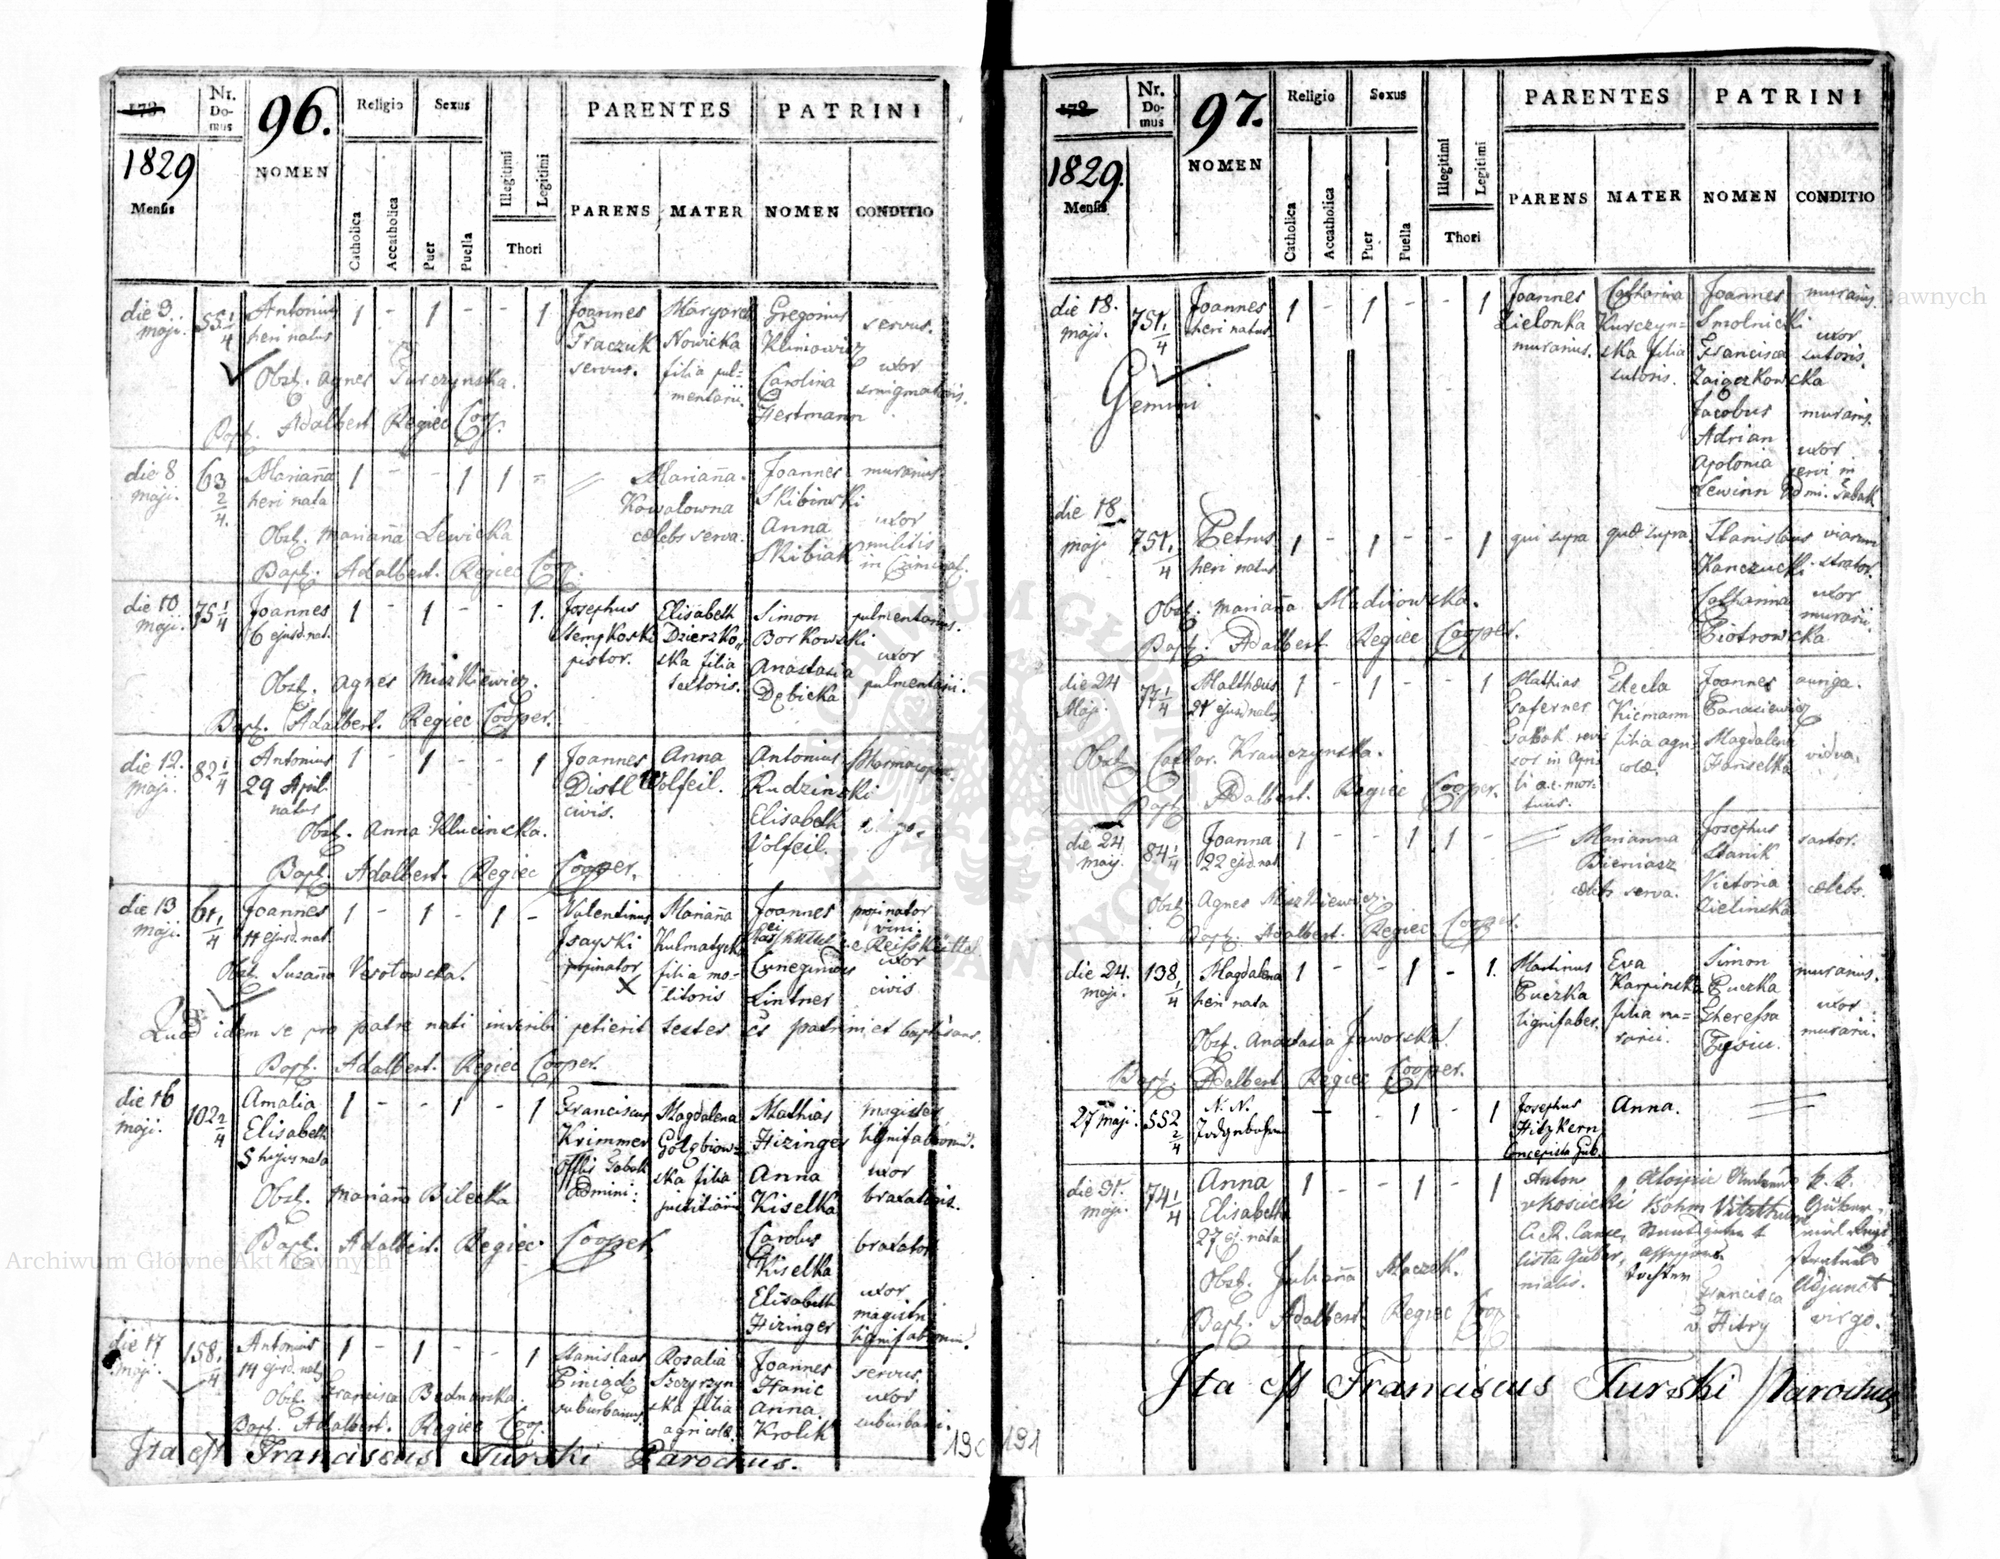 Nr. Domus
96.
Religio
Sexus
PARENTES
PATRINI
1829
NOMEN
Mensis
Catholica
Accatholica
Puer
Puella
Illegitimi
Legitimi
Thori
PARENS
MATER
NOMEN
CONDITIO
die 3 maji.
55 1/4
Antonius heri natus
1 - 1 - - 1
Joannes Traczuk servus.
Margareta Nowicka filia pulmentarii.
Gregorius Klimowicz
servus.
Carolina Hertmann
uxor
Obst. Agnes Turczynska.
Bapt. Adalbert Regiec Coop.
die 8 maji.
63 2/4.
Marianna heri nata
1 - - 1 1 -
Marianna Kowalowna cælebs serva.
Joannes Skibinski
murarius.
Anna Skibiak
uxor militis
Obst. Marianna Lewicka
Bapt. Adalbert. Regiec Coop.
die 10 maji.
75 1/4
Joannes 6 ejusd. nat.
1 - 1 - - 1.
Josephus Stempkoski pistor.
Elisabeth Dzierzkoska filia sutoris.
Simon Borkowski
pulmentarius.
Anastasia Dębicka
uxor pulmentarii.
Obst. Agnes Miszkiewicz.
Bapt. Adalbert. Regiec Cooper.
die 12. maji.
82 1/4
Antonius 29 April natus
1 - 1 - - 1
Joannes Distl civis.
Anna Wolfeil.
Antonius Rudzinski
Elisabeth Volfeil.
Obst. Anna Klucinska.
Bapt. Adalbert. Regiec Cooper.
die 13 maji.
61 1/4
Joannes 11 ejusd. nat.
1 - 1 - 1 -
Valentinus Isayski propinator
X
Marianna Kulmatycka filia molitoris
Joannes
propinator vini.
Cunegundes Lintner
uxor civis
Obst. Susanna Vesołowska.
Quod idem se pro patre nati inscribi petierit testes es patrini et baptisans.
Bapt. Adalbert. Regiec Cooper.
die 16 maji.
102 2/4
Amalia Elisabeth 5 hujus nata
1 - - 1 - 1
Franciscus Krimmer
Magdalena Gołębiowska filia
Mathias Hizinger
magister lignifabrorum.
Anna Kiselka
uxor braxatoris.
Carolus Kiselka
braxator
Elisabeth Hizinger
uxor magistri lignifabrorum.
Obst. Marianna Bilecka
Bapt. Adalbert. Regiec. Cooper.
die 17 maji.
158 1/4
Antonius 14 ejusd. nat.
1 - 1 - - 1
Stanislaus Pieniadz suburbanus.
Rosalia Szczyrzynska filia agricolæ.
Joannes Hanic
servus.
Anna Krolik
uxor suburbani.
Obst. Francisca Bednarska.
Bapt. Adalbert. Regiec Coop.
Ita est Franciscus Turski Parochus.
Nr. Domus
97.
Religio
Sexus
PARENTES
PATRINI
1829.
NOMEN
Mensis
Catholica
Accatholica
Puer
Puella
Illegitimi
Legitimi
Thori
PARENS
MATER
NOMEN
CONDITIO
die 18. maji.
751 1/4
Joannes heri natus
1 - 1 - - 1
Joannes Zielonka murarius.
Catharina Kurczynska filia sutoris.
Joannes Smolnicki
murarius.
Francisca Zaigczkowska
uxor sutoris.
Gemini
Jacobus Adrian
murarius.
Apolonia Lewinn
uxor servi in
die 18 maji
751 1/4
Petrus heri natus
1 - 1 - - 1
qui supra
quæ supra
Stanislaus Kanczucki
viarum strator.
Catharina Piotrowska
uxor murarii.
Obst. Marianna Madziowska.
Bapt. Adalbert Regiec Cooper.
die 24 Maji.
77 1/4
Matthæus 21 ejusd natus
1 - 1 - - 1
Mathias Gaferner
Thecla Kiemann filia agricolæ.
Joannes Panasiewicz
auriga.
Magdalena Hanselka
vidva.
Obst. Cathar. Krawczynska.
Bapt. Adalbert. Regiec Cooper.
die 24 maij.
84 1/4
Joanna 22 ejusd nat
1 - - 1 1 -
Marianna Bieniasz cælebs serva.
Josephus Stanik
sartor.
Victoria Zielinska
cælebs.
Obst. Agnes Miszkiewicz.
Bapt. Adalbert Regiec Cooper.
die 24. maji.
138 1/4
Magdalena heri nata
1 - - 1 - 1.
Martinus Puczka lignifaber.
Eva Karpinska filia murarii.
Simon Puczka
murarius.
Theressa Tysiu.
uxor murarii.
Obst. Anastasia Jaworska.
Bapt. Adalbert Regiec Cooper.
27 maji.
552 2/4
N. N.
1 - 1
Josephus Hitzkern Concepista Gub.
Anna.
die 31. maji.
74 1/4
Anna Elisabetha 27 ej. nata
1 - - 1 - 1
Anton
Aloisia Bohm
k. k.
Adjunct
Francisca v Hitry
virgo.
Obst. Julianna Maczek.
Bapt. Adalbert Regiec Coop
Ita est Franciscus Turski Parochus
191
Archiwum Główne Akt Dawnych